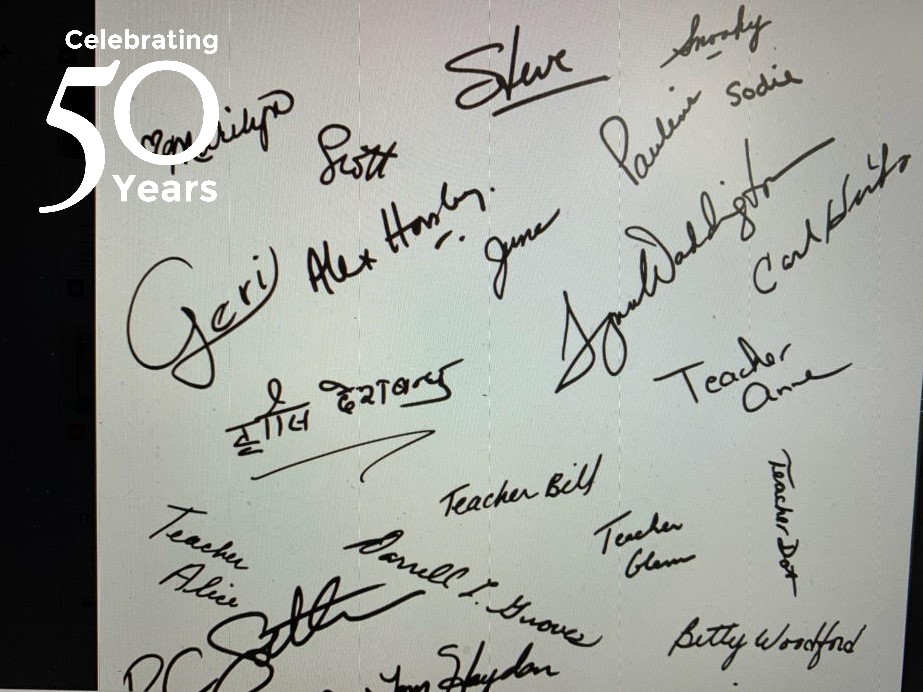 Celebrating
50
Years
Marilyn
Scott
Steve
Snooky
Pauline
Sadie
Geri
Alex
June
Lynn Waddington
Carl
Teacher
Anne
Teacher Bill
Teacher
Alice
Darrell I. Groves
Teacher
Glenn
Teacher Dot
Betty Woodford
Haydon